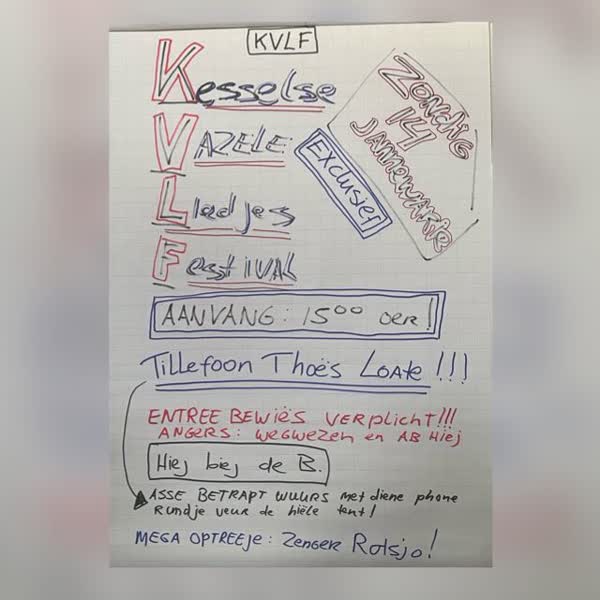 KVLF
Kesselse
VAZELE
Liedjes
FestIVAL
Exclusief
Zondig
14
JANNEWARIE
AANVANG: 15⁰⁰ oer!
Tillefoon Thoës Loate !!!
ENTREE BEWIËS VERPLICHT!!!
ANGERS: wegwezen en AB Hiej
Hiej biej de B.
ASSE BETRAPT WUURS met diene phone
Rundje veur de hiële tent!
MEGA OPTREEJe: Zenger Rotsjo!